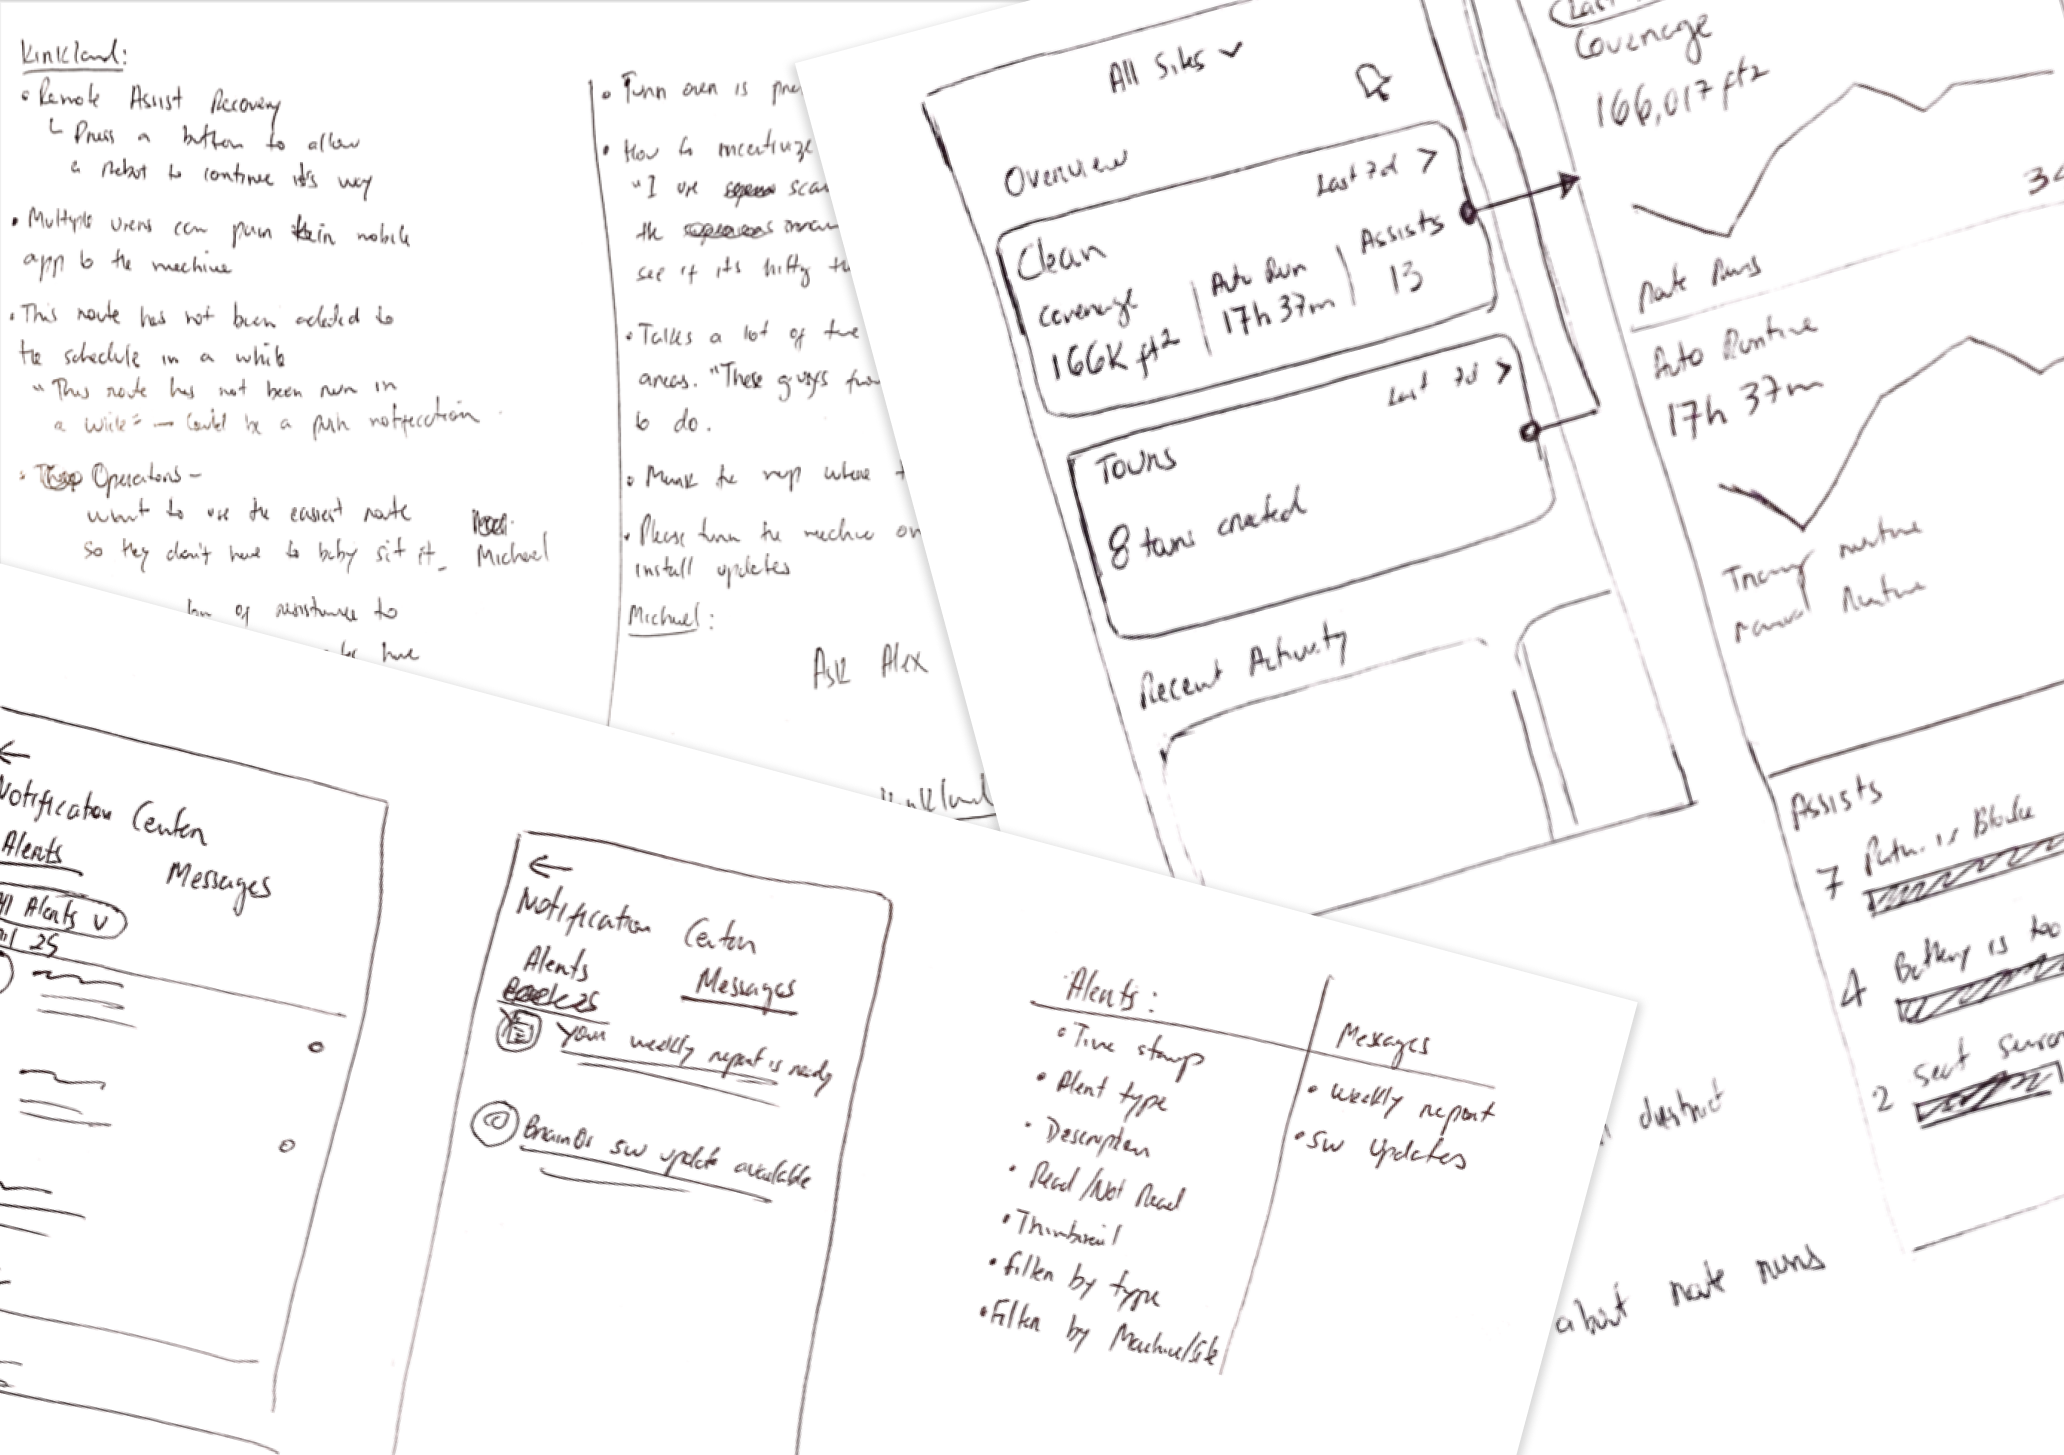 Kirkland:
• Remote Assist Recovery
Press a button to allow
a robot to continue it's way
• Multiple users can pair their mobile
app to the machine
• This route has not been added to
the schedule in a while
"This route has not been run in
a while" → Could be a push notification
• Operators -
want to use the easiest route
so they don't have to baby sit it.
Michael
of resistance to
have
• Turn over is
• How to incentivize
"I use
the
see if its hitting
• Talks a lot of the
areas. "These guys
to do.
• Mark the map where
• Please turn the machine on
install updates
Michael:
Ask Alex
Kirkland
All Sites
Overview
Last 7d >
Clean
Coverage
166K ft2
Auto Run
17h 37m
Assists
13
Last 7d >
Tours
8 tours created
Recent Activity
Coverage
166,017 ft2
Route Runs
Auto Runtime
17h 37m
Training runtime
manual Runtime
Assists
7 Path is Blocke
4 Battery is too
2 Seat Sensor
district
about route runs
←
Notification Center
Alerts
Messages
All Alerts v
25
←
Notification Center
Alerts
Messages
Your weekly report is ready
BrainOs sw update available
Alerts:
• Time stamp
• Alert type
• Description
• Read/Not Read
• Thumbnail
• Filter by type
• Filter by Machine/Site
Messages
• Weekly report
• SW Updates